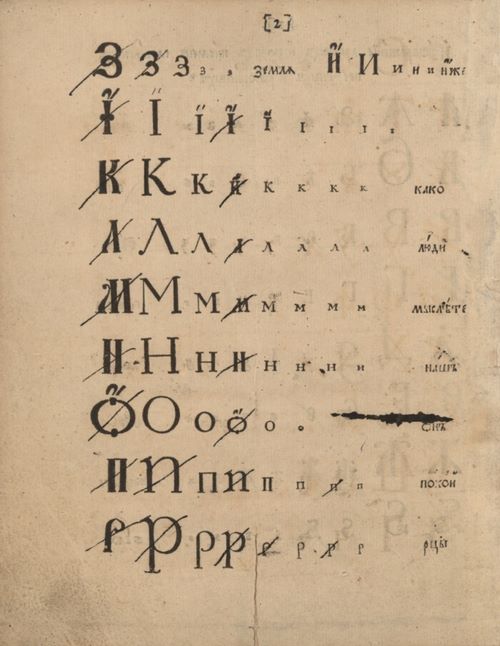 [2]
З З З з з земля И И и и и иже
І Ї ї ї ї і і і і
К К к к к к к к како
Л Л л л л л л л люди
М М м м м м м м мыслѣте
Н Н н н н н н н нашъ
О О о о о о онъ
П П п п п п п п покой
Р Р р р р р р р рцы